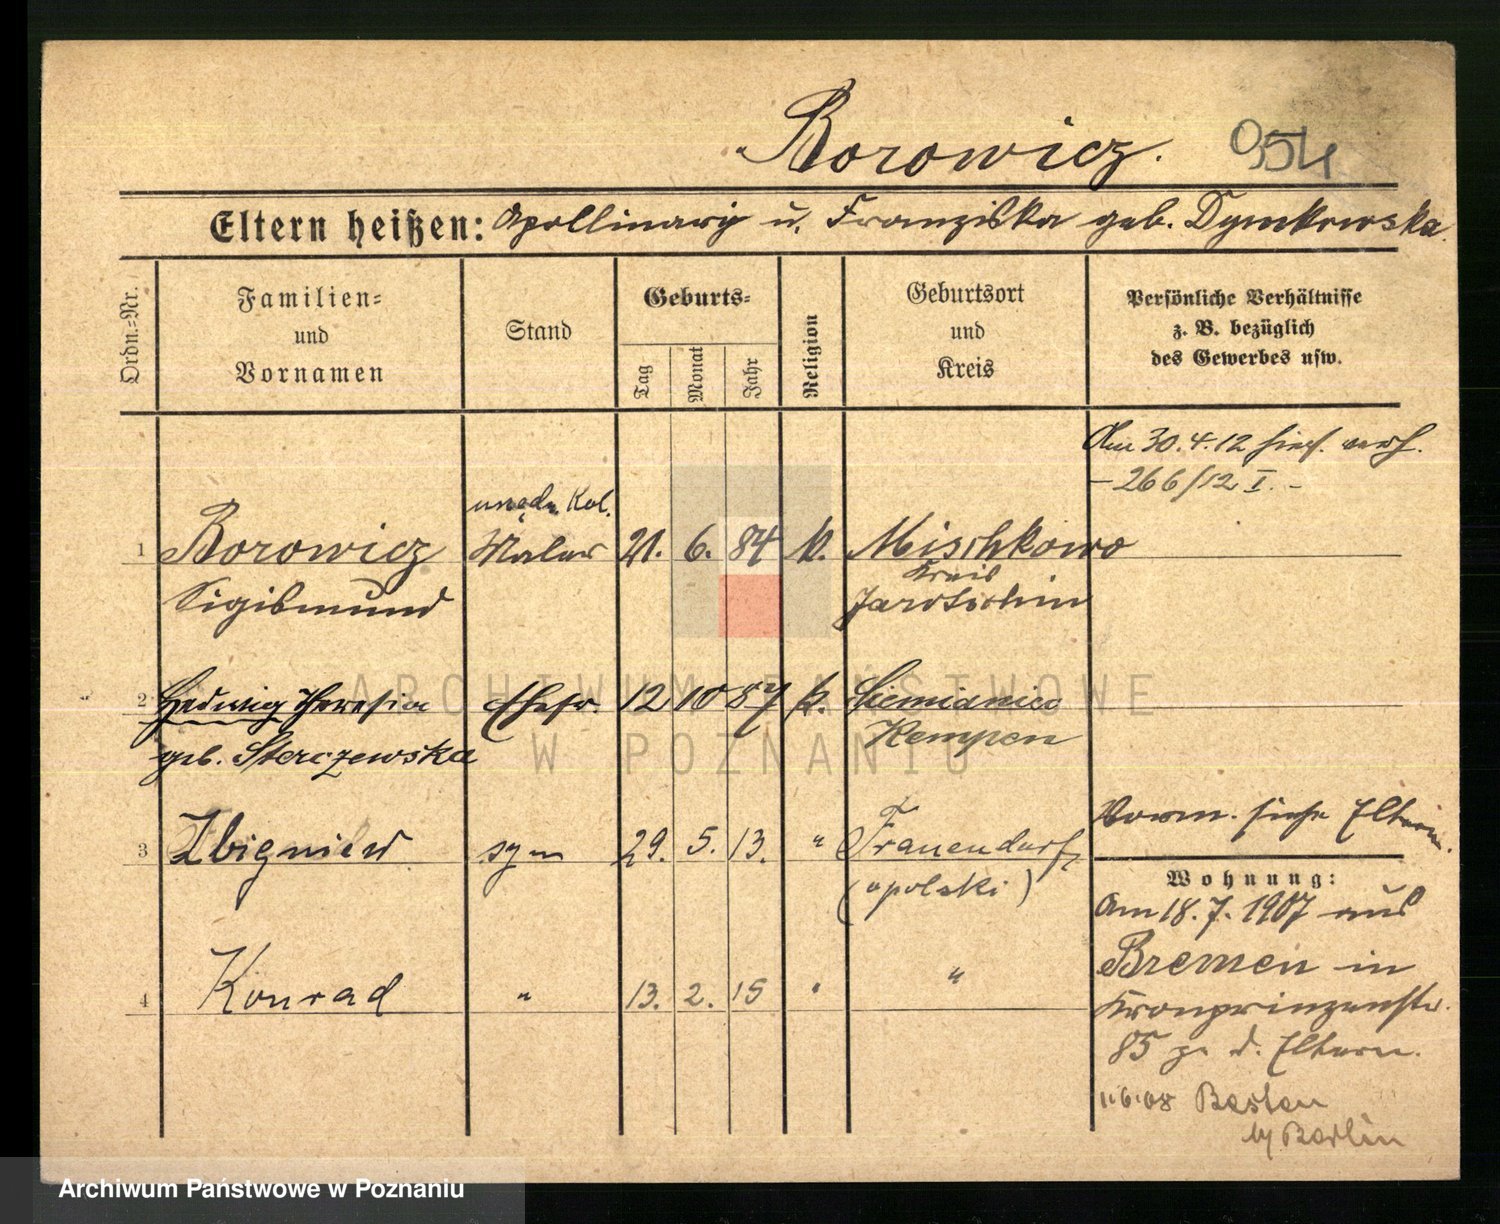 Borowicz. 954
Eltern heißen: Apollinary u. Franziska geb. Dymkowska
Ordn.=Nr.
Familien=
und
Vornamen
Stand
Geburts=
Tag
Monat
Jahr
Religion
Geburtsort
und
Kreis
Persönliche Verhältnisse
z. B. bezüglich
des Gewerbes usw.
Am 30.4.12 hies. verh.
- 266/12 I. -
1 Borowicz Maler 21. 6. 84 k. Mischkowo
Sigismund Kreis
Jarotschin
2 Hedwig Theresia Ehefr. 12 10 87 k. Siemianice
geb. Sterczewska Kempen
Vorm. siehe Eltern.
3 Zbigniew syn 29. 5. 13. " Frauendorf
(opolski)
Wohnung:
Am 18.7.1907 aus
Bremen in
4 Konrad " 13. 2. 15 " "
Kronprinzenstr.
85 z. d. Eltern.
1.6.08 Besten
b/ Berlin
ARCHIWUM PAŃSTWOWE
W POZNANIU
Archiwum Państwowe w Poznaniu